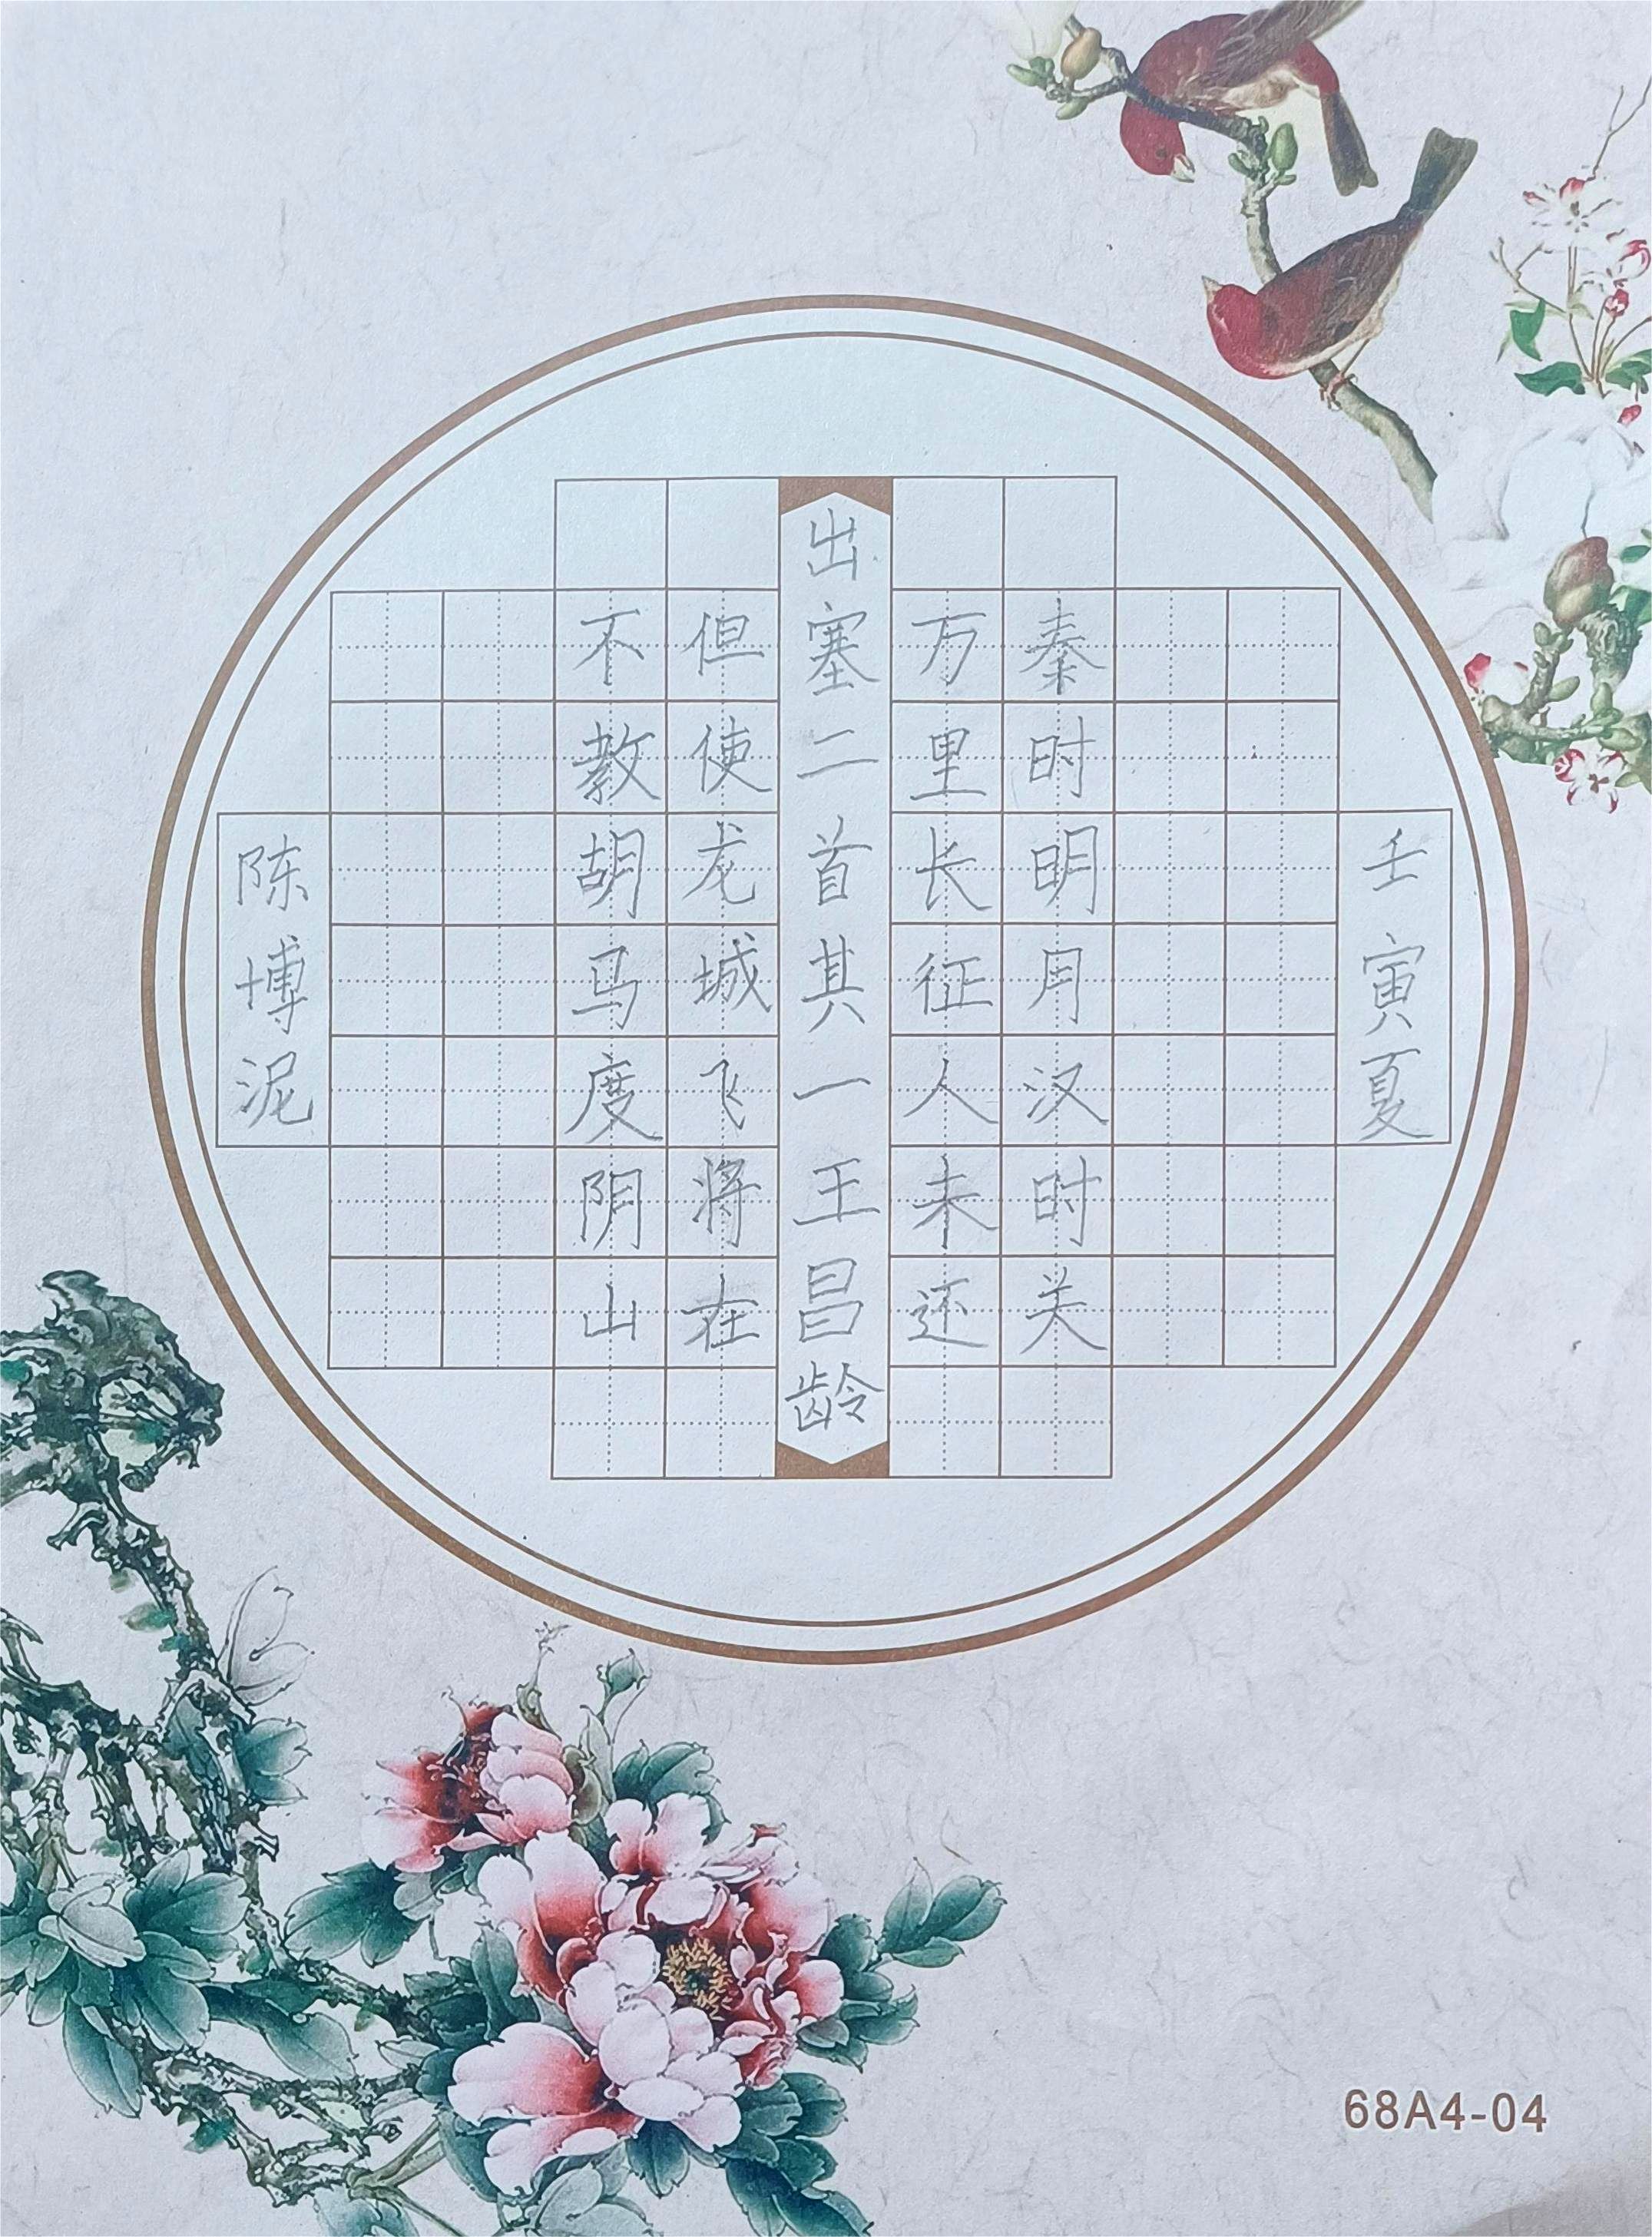 壬寅夏
秦时明月汉时关
万里长征人未还
出塞二首其一王昌龄
但使龙城飞将在
不教胡马度阴山
陈博泥
68A4-04